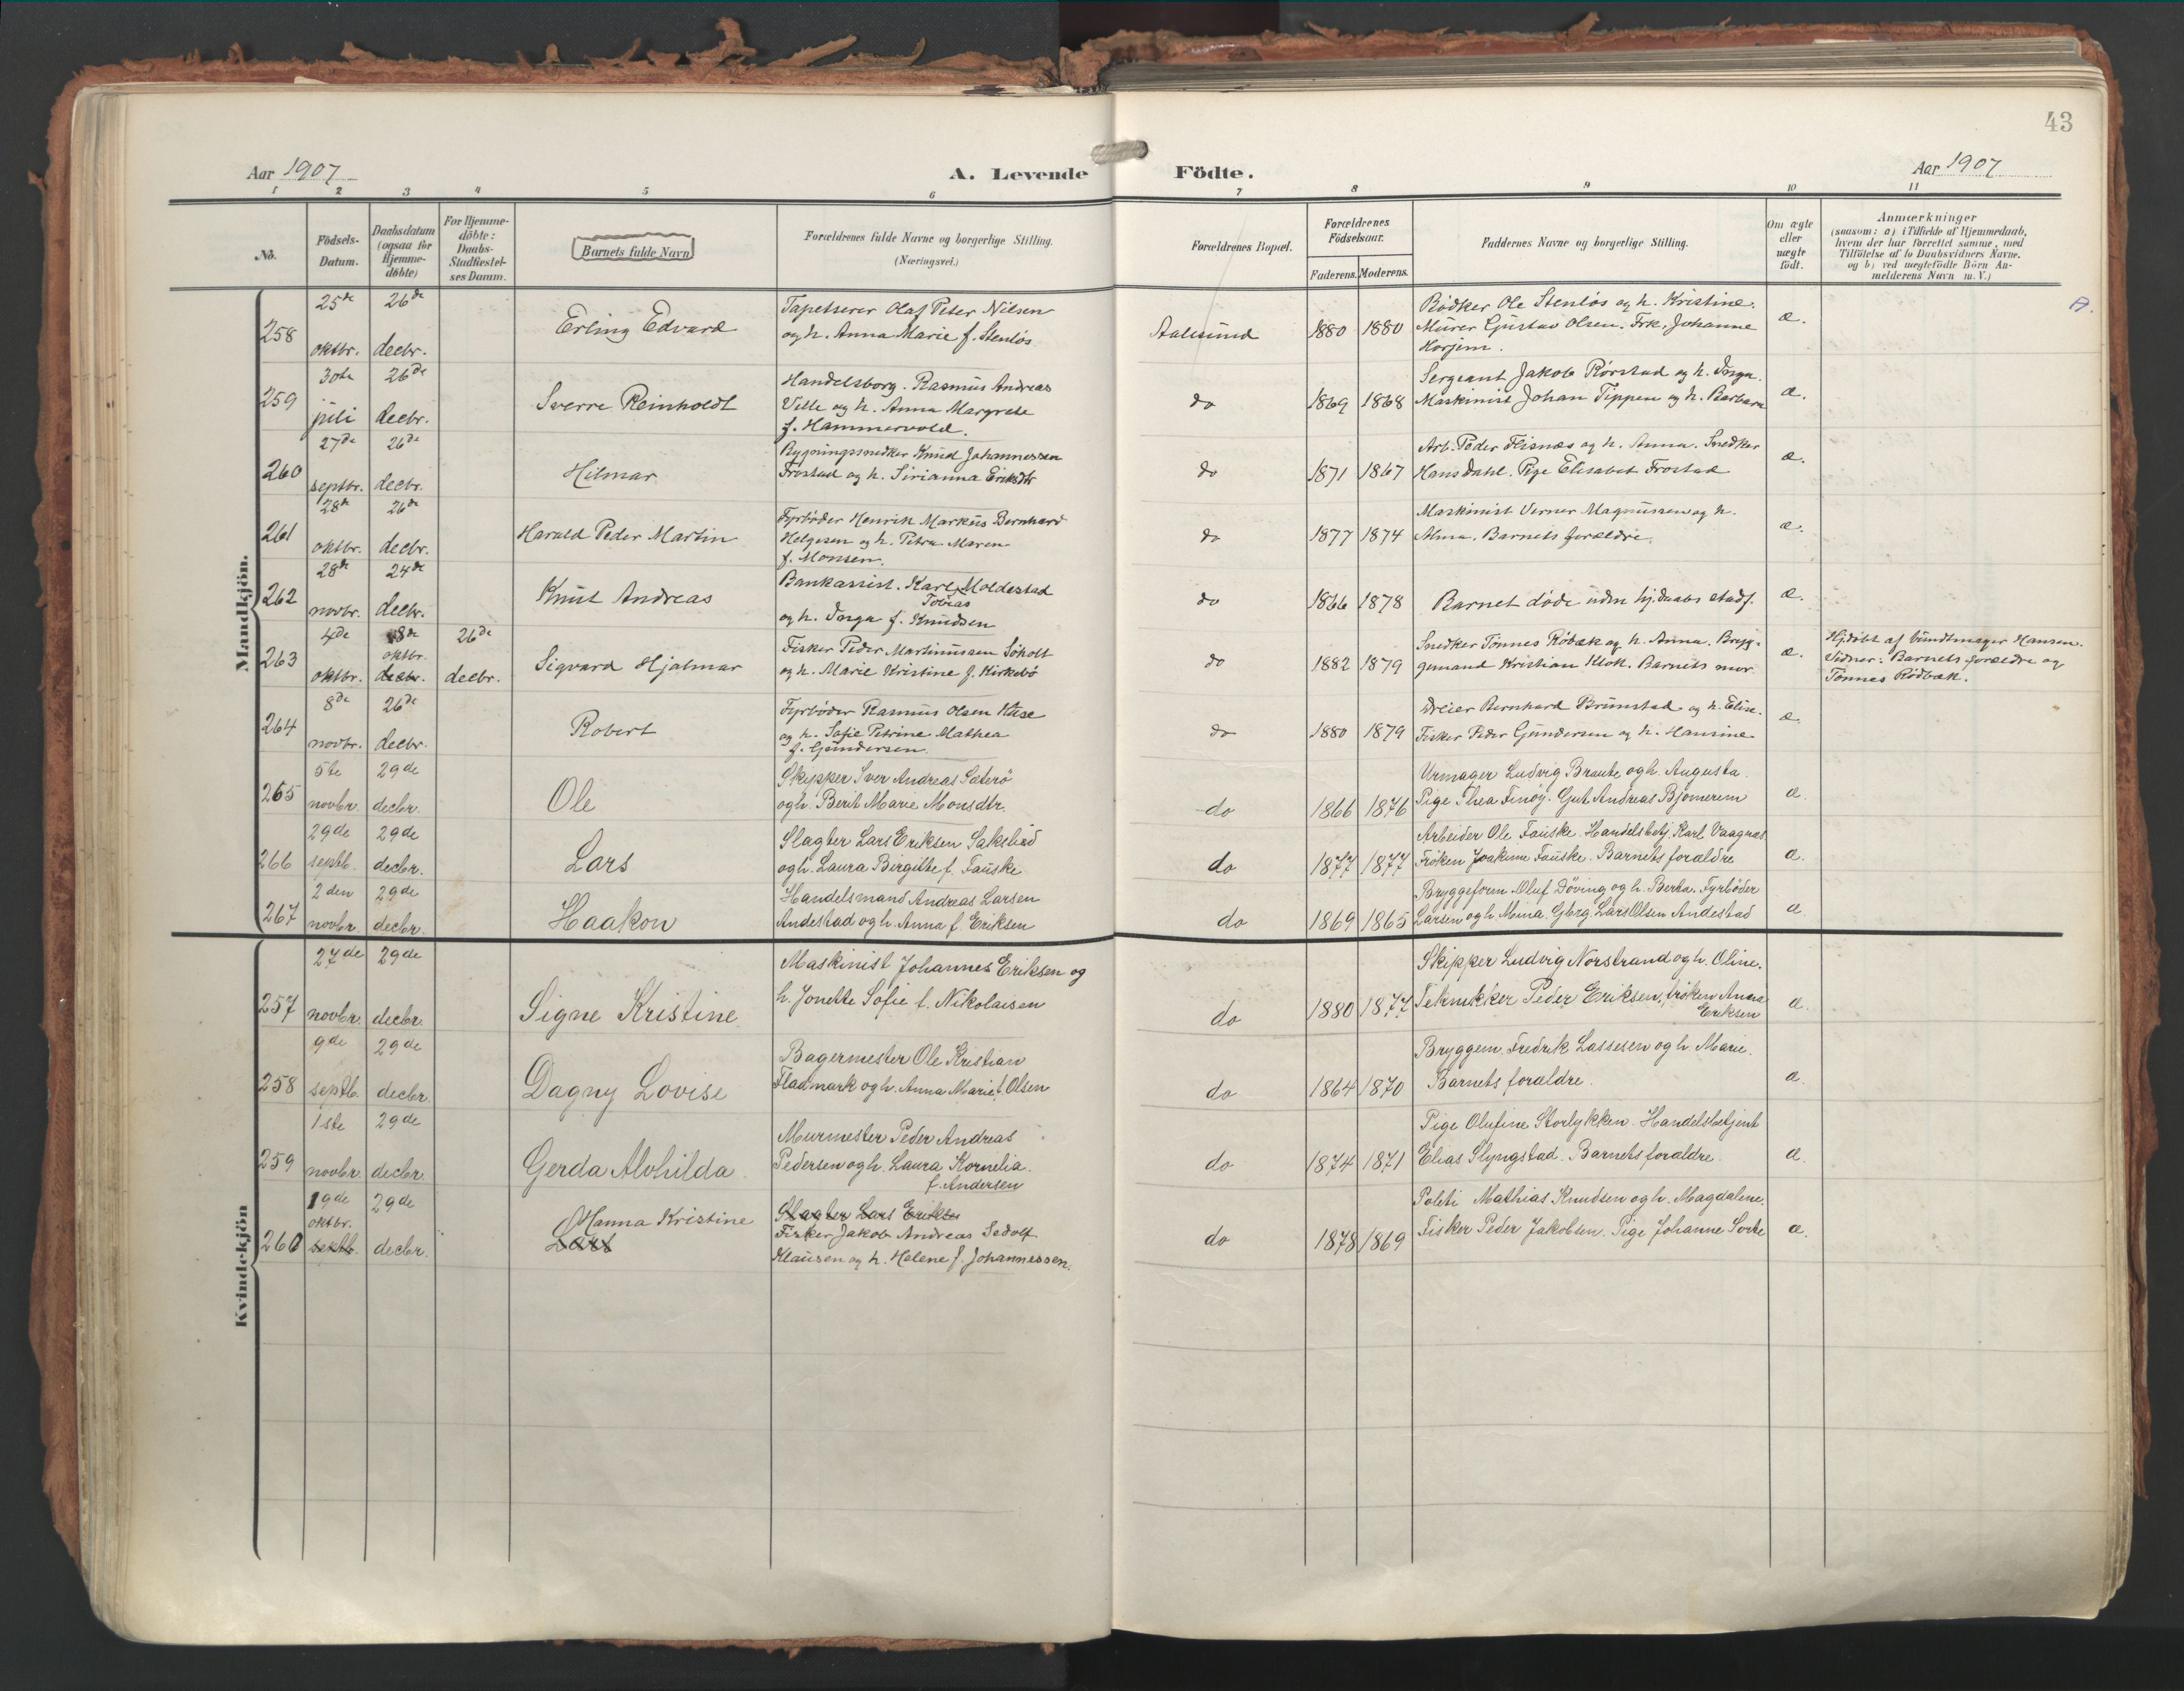 43
Aar 1907
A. Levende Födte.
Aar 1907
1 2 3 4 5 6 7 8 9 10 11
No.
Födsels-Datum.
Daabsdatum (ogsaa for Hjemme-döbte)
For Hjemme-döbte: Daabs-Stadfæstel-ses Datum.
Barnets fulde Navn
Forældrenes fulde Navne og borgerlige Stilling.
(Næringsvei.)
Forældrenes Bopæl.
Forældrenes Födselsaar.
Faderens. Moderens.
Faddernes Navne og borgerlige Stilling.
Om ægte eller uægte födt.
Anmærkninger
(saasom: a) i Tilfælde af Hjemmedaab,
hvem der har forrettet samme, med
Tilföielse af to Daabsvidners Navne.
og b) ved uægtefödte Börn An-
melderens Navn m. V.)
Mandkjön.
258 25de oktbr. 26de decbr. Erling Edvard
Tapetserer Olaf Peter Nilsen
og h. Anna Marie f. Stenlös
Aalesund 1880 1880
Bödker Ole Stenlös og h. Kristine.
Murer Gustav Olsen. Frk. Johanne
Horjem.
æ.
259 30te juli 26de decbr. Sverre Reinholdt
Handelsborg. Rasmus Andreas
Velle og h. Anna Margrete
f. Hammervold.
do 1869 1868
Sergeant Jakob Rörstad og h. Inga.
Maskinist Johan Tippen og h. Barbara
æ.
260 27de septbr. 26de decbr. Hilmar
Bygningssnedker Knud Johannessen
Frostad og h. Sirianna Eriksdtr
do 1871 1867
Arb. Peder Flisnæs og h. Anna. Snedker
Hans Dahl. Pige Elisabet Frostad
æ.
261 28de oktbr. 26de decbr. Harald Peder Martin
Fyrböder Henrik Markus Bernhard
Helgesen og h. Petra Maren
f. Monsen.
do 1877 1874
Maskinist Verner Magnussen og h.
Alma. Barnets forældre.
æ.
262 28de novbr. 24de decbr. Knut Andreas
Bankassist. Karl Moldestad
Tobias
og h. Inga f. Knudsen
do 1866 1878
Barnet døde uden hj.daabs stadf.
æ.
263 4de oktbr. 8de oktbr. decbr. 26de decbr. Sigvard Hjalmar
Fisker Peder Martinussen Söholt
og h. Marie Kristine f. Kirkebö
do 1882 1879
Snedker Tönnes Röbæk og h. Anna. Brygg-
gemand Kristian Klok. Barnets mor
æ.
Hj.döbt af Bundtmager Hansen.
Vidner: Barnets forældre og
Tönnes Rödbæk.
264 8de novbr. 26de decbr. Robert
Fyrböder Rasmus Olsen Huse
og h. Sofie Petrine Mathea
f. Gundersen.
do 1880 1879
Dreier Bernhard Brunstad og h. Elise.
Fisker Peder Gundersen og h. Hansine
æ.
265 5te novbr. 29de decbr. Ole
Skipper Iver Andreas Sæterö
og h. Berit Marie Monsdtr.
do 1866 1876
Urmager Ludvig Braute og h. Augusta.
Pige Thea Finöy. Gut Andreas Bjomerem
æ
266 29de septb. 29de decbr. Lars
Slagter Lars Eriksen Sakslid
og h. Laura Birgitte f. Fauske
do 1877 1877
Arbeider Ole Fauske. Handelsbetj. Karl Vaagnæs
Fröken Joakime Fauske. Barnets forældre
æ.
267 2den novbr. 29de decbr. Haakon
Handelsmand Andreas Larsen
Andestad og h. Anna f. Eriksen
do 1869 1865
Bryggeform. Oluf Döving og h. Berta. Fyrböder
Larsen og h. Mina. Gbrg. Lars Olsen Andestad
æ
Kvindekjön
257 27de novbr. 29de decbr. Signe Kristine
Maskinist Johannes Eriksen og
h. Jonette Sofie f. Nikolaisen
do 1880 1877
Skipper Ludvig Norstrand og h. Oline.
Teknikker Peder Eriksen, fröken Anna
Eriksen
æ.
258 9de septb. 29de decbr. Dagny Lovise
Bagermester Ole Kristian
Fladmark og h. Anna Marie f. Olsen
do 1864 1870
Bryggem. Fredrik Lassesen og h. Marie.
Barnets forældre.
æ.
259 1ste novbr. 29de decbr. Gerda Alvhilda
Murmester Peder Andreas
Pedersen og h. Laura Kornelia.
f. Andersen
do 1874 1871
Pige Olufine Storlykken. Handelsbetjent
Elias Slyngstad. Barnets forældre.
æ.
260 19de oktbr. septb. 29de decbr. Hanna Kristine
Lars
Slagter Lars Eriksen
Fisker Jakob Andreas Sedolf
Klausen og h. Helene f. Johannessen.
do 1878 1869
Politi Mathias Knudsen og h. Magdalene.
Fisker Peder Jakobsen. Pige Johanne Sorte
æ.